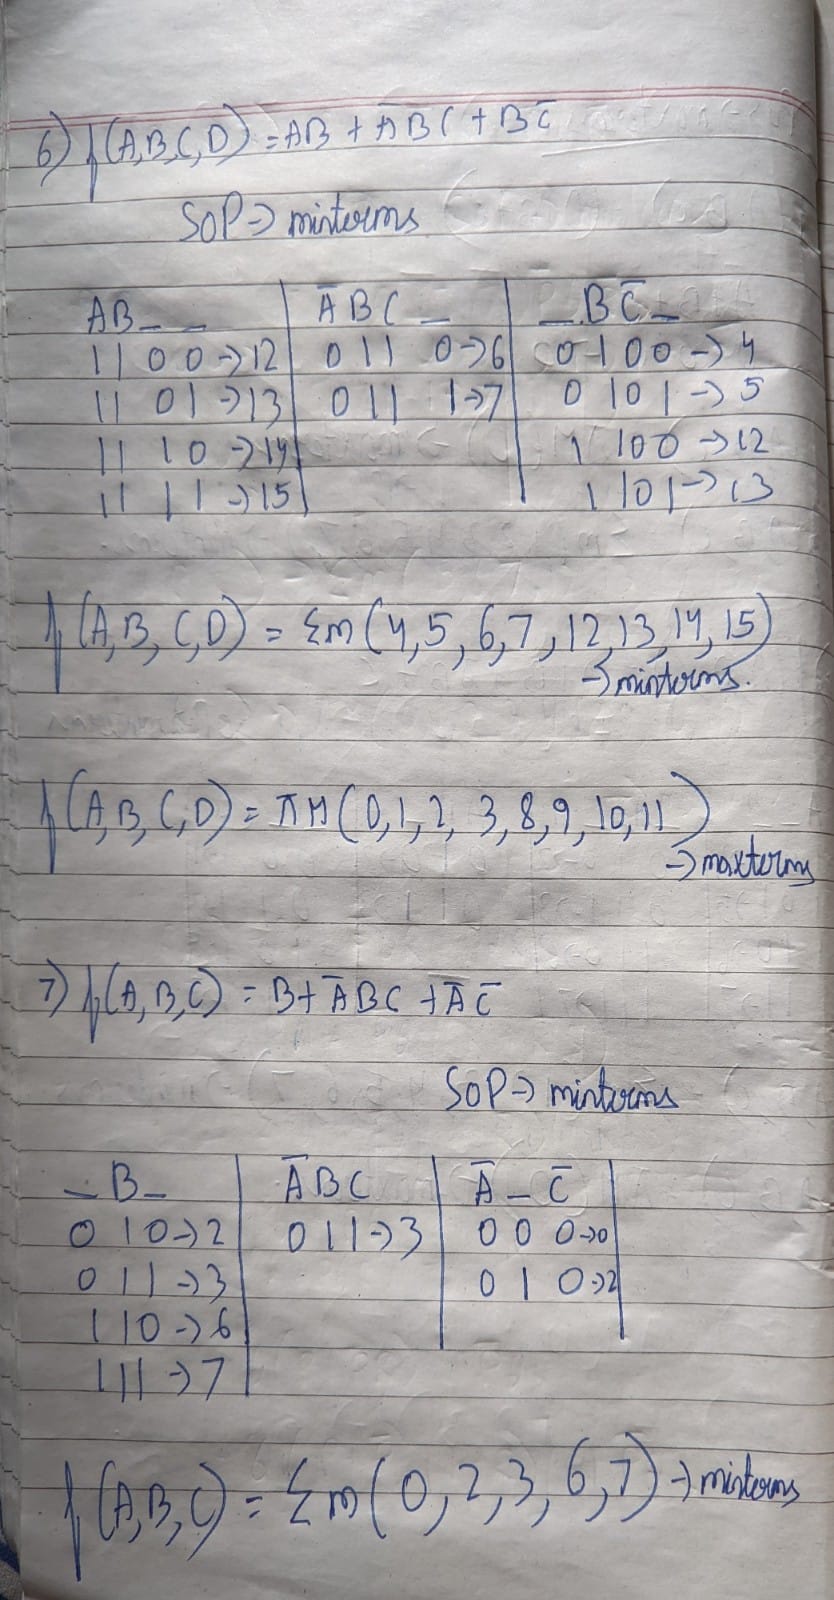 6) f(A,B,C,D) = AB + A̅BC + BC̅
SOP => minterms
AB_ _ | A̅BC _ | _BC̅_
11 00 → 12 | 011 0 → 6 | 0100 → 4
11 01 → 13 | 011 1 → 7 | 0 101 → 5
11 10 → 14 | | 1 100 → 12
11 11 → 15 | | 1 101 → 13
f(A,B,C,D) = Σm(4,5,6,7,12,13,14,15)
→ minterms.
f(A,B,C,D) = πM(0,1,2,3,8,9,10,11)
→ maxterms
7) f(A,B,C) = B + A̅BC + A̅C̅
SOP → minterms
_B_ | A̅BC | A̅_C̅
0 10 → 2 | 011 → 3 | 0 0 0 → 0
0 11 → 3 | | 0 1 0 → 2
110 → 6
111 → 7
f(A,B,C) = Σm(0,2,3,6,7) → minterms